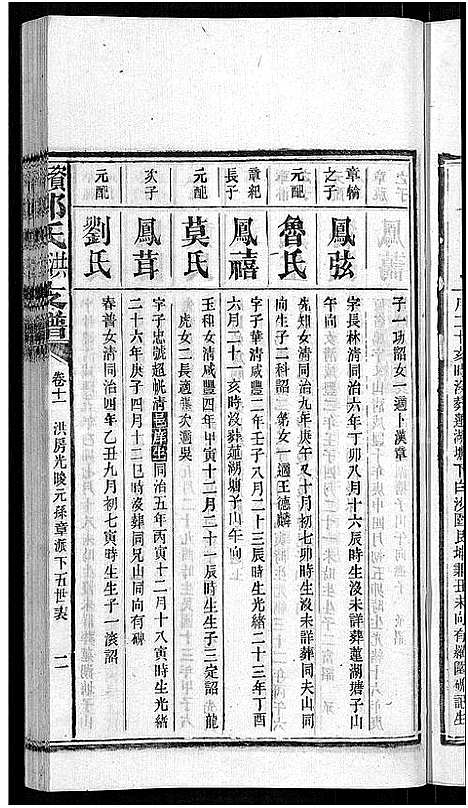 子一功詔女一適卜漢章
章翰
之子
鳳弦
字長林清同治六年丁卯八月十六辰時生沒未詳葬蓮湖塘子山
午向
元配
魯氏
先知女清同治九年庚午又十月初七卯時生沒未詳葬同夫山同
向生子二科詔 女一適王德麟
章杞
長子
鳳禧
字子華清咸豐二年壬子八月二十三辰時生光緒二十三年丁酉
六月二十一亥時沒葬蓮湖塘子山午向
元配
莫氏
玉和女清咸豐四年甲寅十二月二十一辰時生生子三定詔 光 龍
虎女二長適 次適吳
次子
鳳茸
字子忠號超帆清邑庠生同治五年丙寅十二月十八寅時生光緒
二十六年庚子四月十二巳時沒葬同兄山同向有碑
元配
劉氏
春普女清同治四年乙丑九月初七寅時生生子一滚詔
資邱氏洪支譜
卷十一 洪房光晙元孫章派下五世表
二